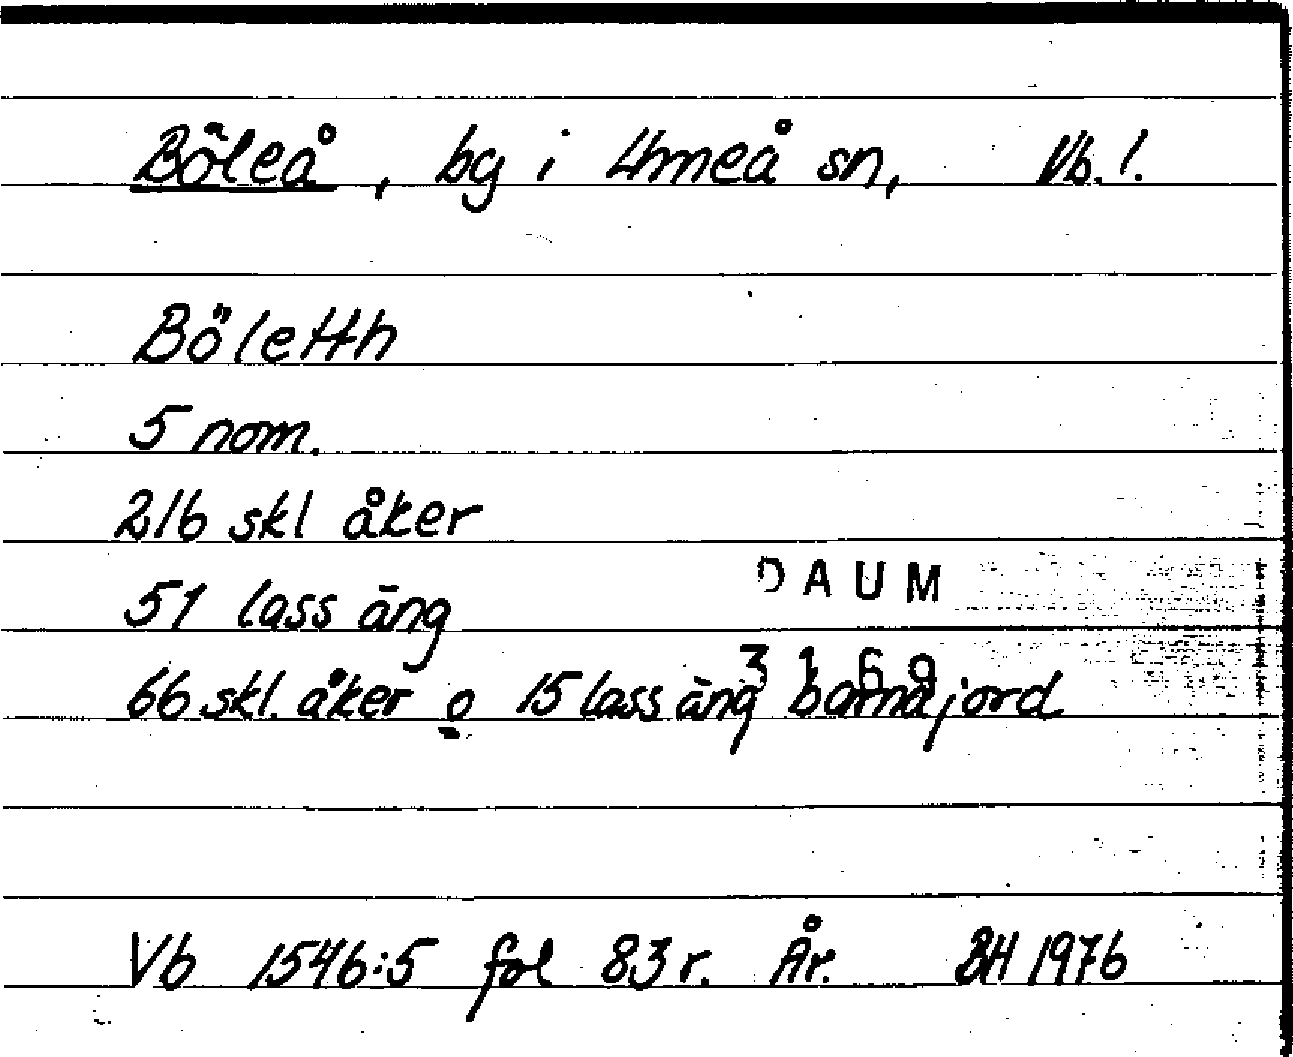 Böleå, by i Umeå sn, Vb. l.
Böletth
5 nom.
216 skl åker
51 lass äng
DAUM
3169
66 skl. åker o 15 lass äng barnajord
Vb 1546:5 fol 83 r. År. BH 1976